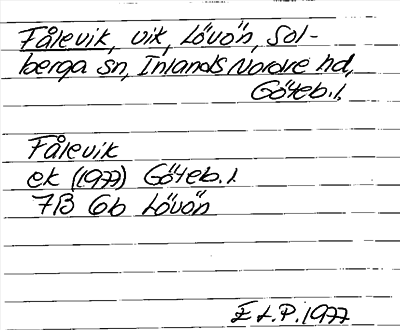 Fålevik, vik, Lövön, Sol-
berga sn, Inlands Nordre hd,
Göteb. l.
Fålevik
ek (1977) Göteb. l.
7B 6b Lövön
L.P. 1977